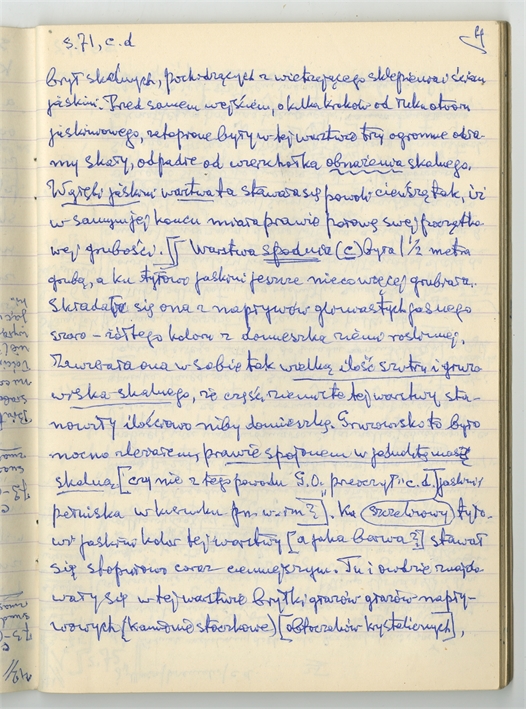 s. 71, c.d
4
brył skalnych, pochodzących z wietrzejącego sklepienia i ścian
jaskini. Przed samem wejściem, o kilka kroków od
jaskiniowego, zatopione były w tej warstwie trzy ogromne okła-
my skały, odpadłe od wierzchołka obnażenia skalnego.
W głębi jaskini warstwa ta stawała się powoli cieńszą tak, iż
w samym jej końcu miała prawie połowę swej początko-
wej grubości. Warstwa spodnia (c) była 1 ½ metra
grubą, a ku tyłowi jaskini jeszcze nieco więcej grubiała.
Składała się ona z napływów gliniastych jasnego
szaro-żółtego koloru z domieszką ziemi roślinnej.
Zawierała ona w sobie tak wielką ilość szutru i gruzo-
wiska skalnego, że część ziemista tej warstwy sta-
nowiły ilościowo niby domieszkę. Gruzowisko to było
mocno zleżałem, prawie spojonem w jednolitą masę
skalną [czy nie z tego powodu G.O. przeoczył "c.d." jaskini
w kierunku pn. w-im?]. Ku (szczelinowy) tyło-
wi jaskini kolor tej warstwy [a jaka barwa?] stawał
się stopniowo coraz ciemniejszym. Tu i owdzie znajdo-
wały się w tej warstwie bryłki głazów napły-
wowych (kamienie stoczkowe) [obtoczaków krystalicznych],